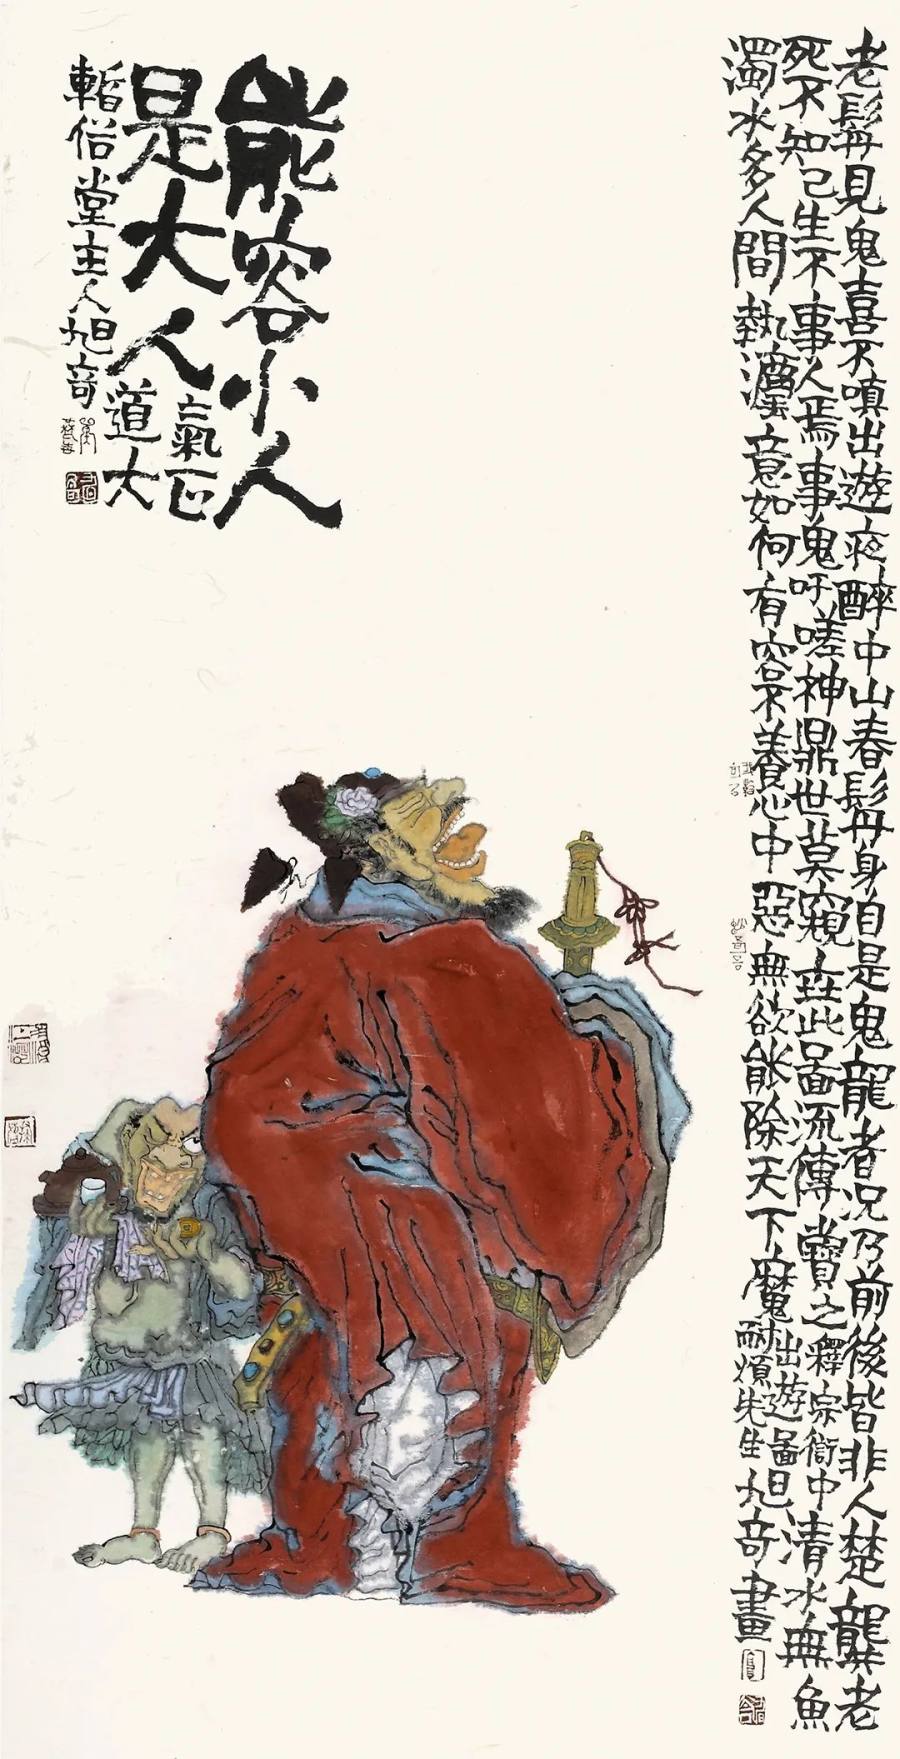 老髯見鬼喜不嗔出遊夜醉中山春髯身自是鬼龍者況乃前後皆非人楚龔老
死不知己生不事人焉事鬼吁嗟神鼎世莫窺在此圖流傳寶之釋宗衍中出遊圖清水無魚
濁水多人間執灋竟如何有容不養心中惡無欲能除天下魔耐煩先生旭奇畫
能容小人
是大人
氣正
道大
暫俗堂主人旭奇